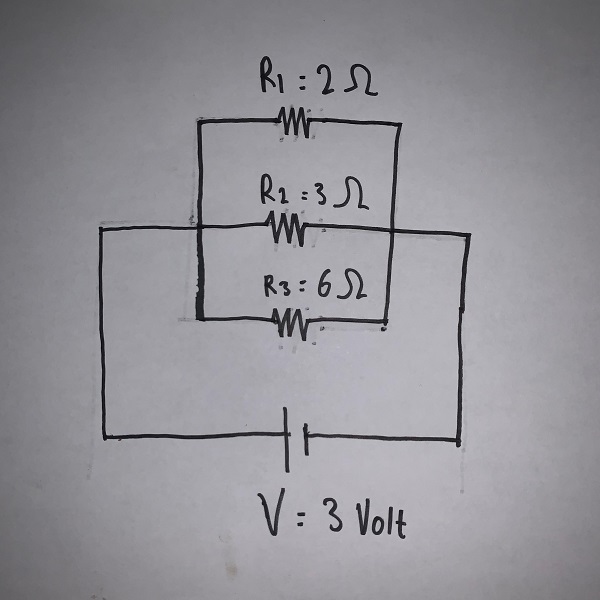 R1 : 2 Ω
R2 : 3 Ω
R3 : 6 Ω
V = 3 Volt